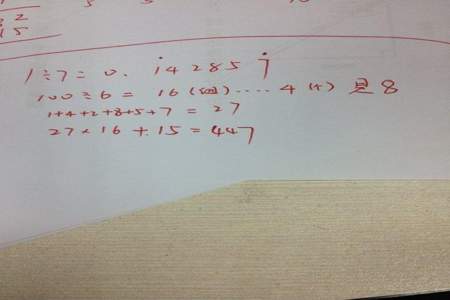 3 2
1 5
1÷7=0.1̇42857̇
100÷6=16(组)....4(个) 是8
1+4+2+8+5+7=27
27×16+15=447